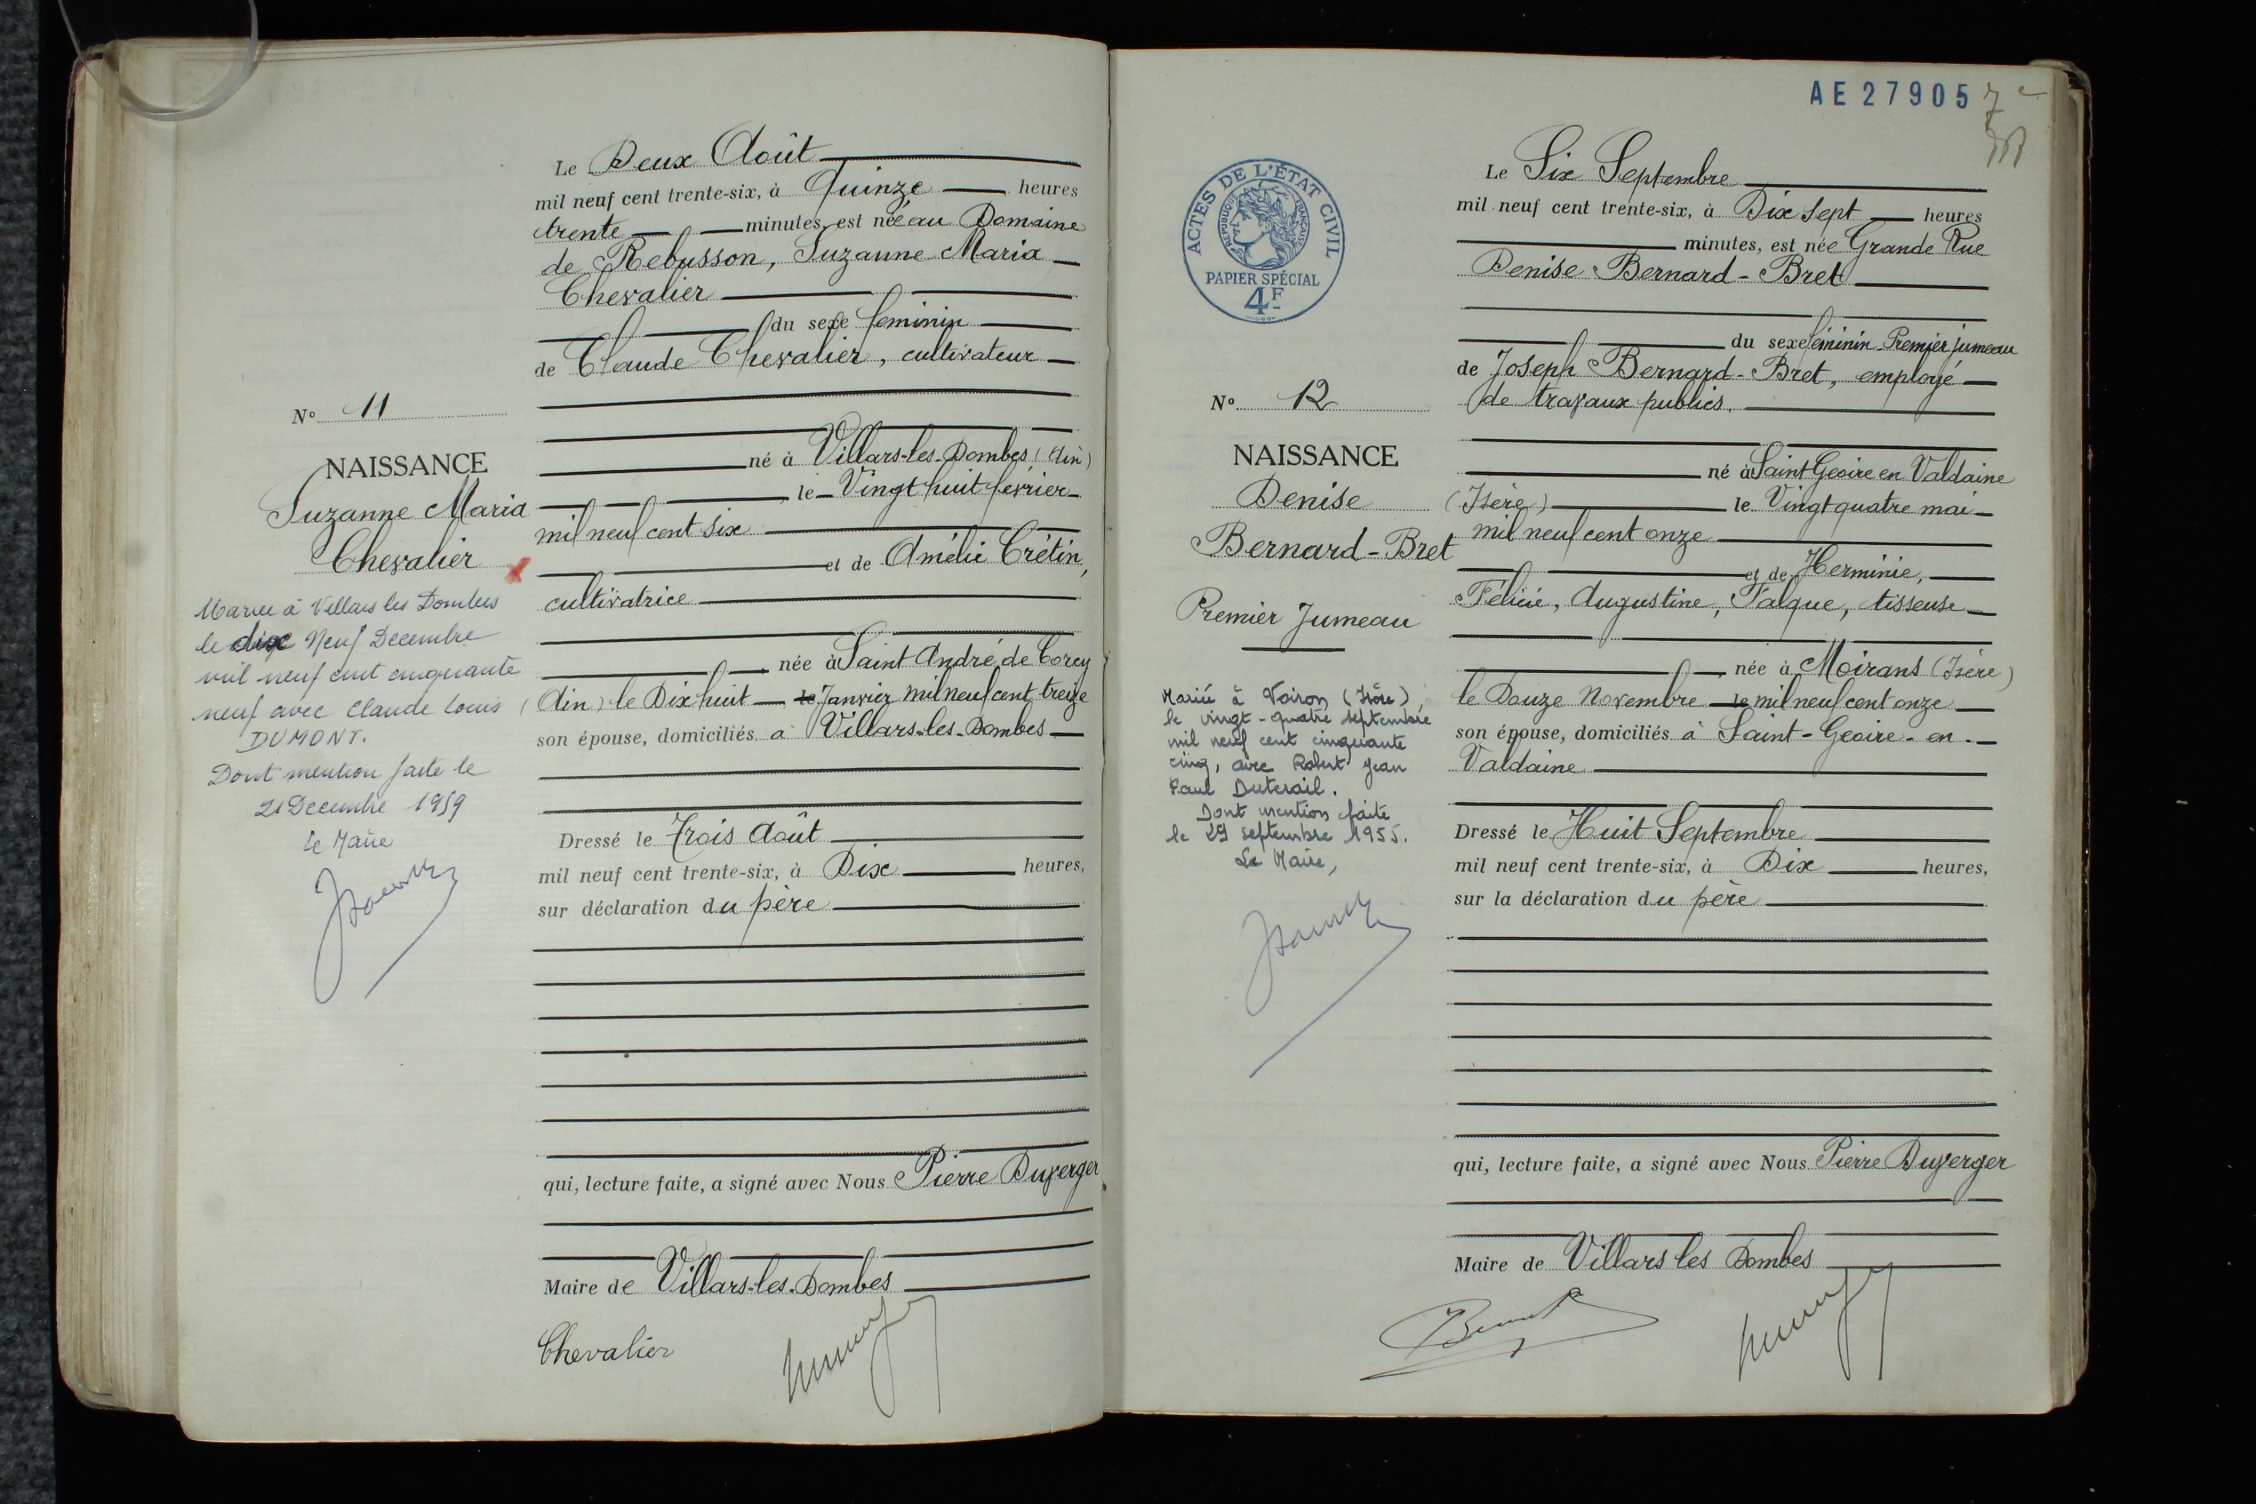 Le Deux Août
mil neuf cent trente-six, à Quinze heures
trente minutes, est née au Domaine
de Rebusson, Suzanne Maria
Chevalier
du sexe féminin
de Claude Chevalier, cultivateur
né à Villars-les-Dombes (Ain)
le Vingt huit février
mil neuf cent six
et de Amélie Crétin,
cultivatrice
née à Saint André de Corcy
(Ain) le Dix huit le Janvier mil neuf cent treize
son épouse, domiciliés à Villars-les-Dombes
Dressé le Trois Août
mil neuf cent trente-six, à Dix heures,
sur déclaration du père
qui, lecture faite, a signé avec Nous Pierre Duverger
Maire de Villars-les-Dombes
Chevalier
N° 11
NAISSANCE
Suzanne Maria
Chevalier
Mariée à Villars les Dombes
le dix Neuf Decembre
mil neuf cent cinquante
neuf avec Claude Louis
DUMONT.
Dont mention faite le
21 Decembre 1959
Le Maire
AE27905
ACTES DE L'ÉTAT CIVIL
RÉPUBLIQUE FRANÇAISE
PAPIER SPÉCIAL
4F
N° 12
NAISSANCE
Denise
Bernard-Bret
Premier Jumeau
Mariée à Voiron (Isère),
le vingt-quatre septembre
mil neuf cent cinquante
cinq, avec Robert Jean
Paul Duterail.
Dont mention faite
le 29 septembre 1955.
Le Maire,
Le Six Septembre
mil neuf cent trente-six, à Dix sept heures
minutes, est née Grande Rue
Denise Bernard-Bret
du sexe féminin Premier jumeau
de Joseph Bernard-Bret, employé
de travaux publics.
né à Saint Geoire en Valdaine
(Isère) le Vingt quatre mai
mil neuf cent onze
et de Herminie,
Félicie, Augustine, Falque, tisseuse
née à Moirans (Isère)
le Douze Novembre le mil neuf cent onze
son épouse, domiciliés à Saint-Geoire-en-
Valdaine
Dressé le Huit Septembre
mil neuf cent trente-six, à Dix heures,
sur la déclaration du père
qui, lecture faite, a signé avec Nous Pierre Duverger
Maire de Villars les Dombes